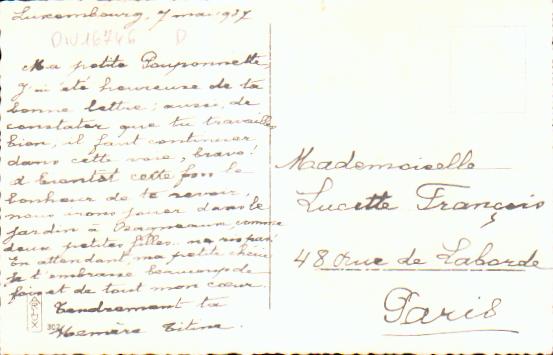 Luxembourg, 7 mai 1937
DIV16746 D
Ma petite Pouponnette,
J'ai été heureuse de ta
bonne lettre, aussi, de
constater que tu travailles
bien, il faut continuer
dans cette voie, bravo!
A bientôt cette fois le
bonheur de te revoir,
nous irons jouer dans le
jardin à comme
deux petites filles
En attendant ma petite chérie
Je t'embrasse beaucoup de
fois et de tout mon cœur.
Tendrement ta
Mémère Titine
Mademoiselle
Lucette François
48 Rue de Laborde
Paris